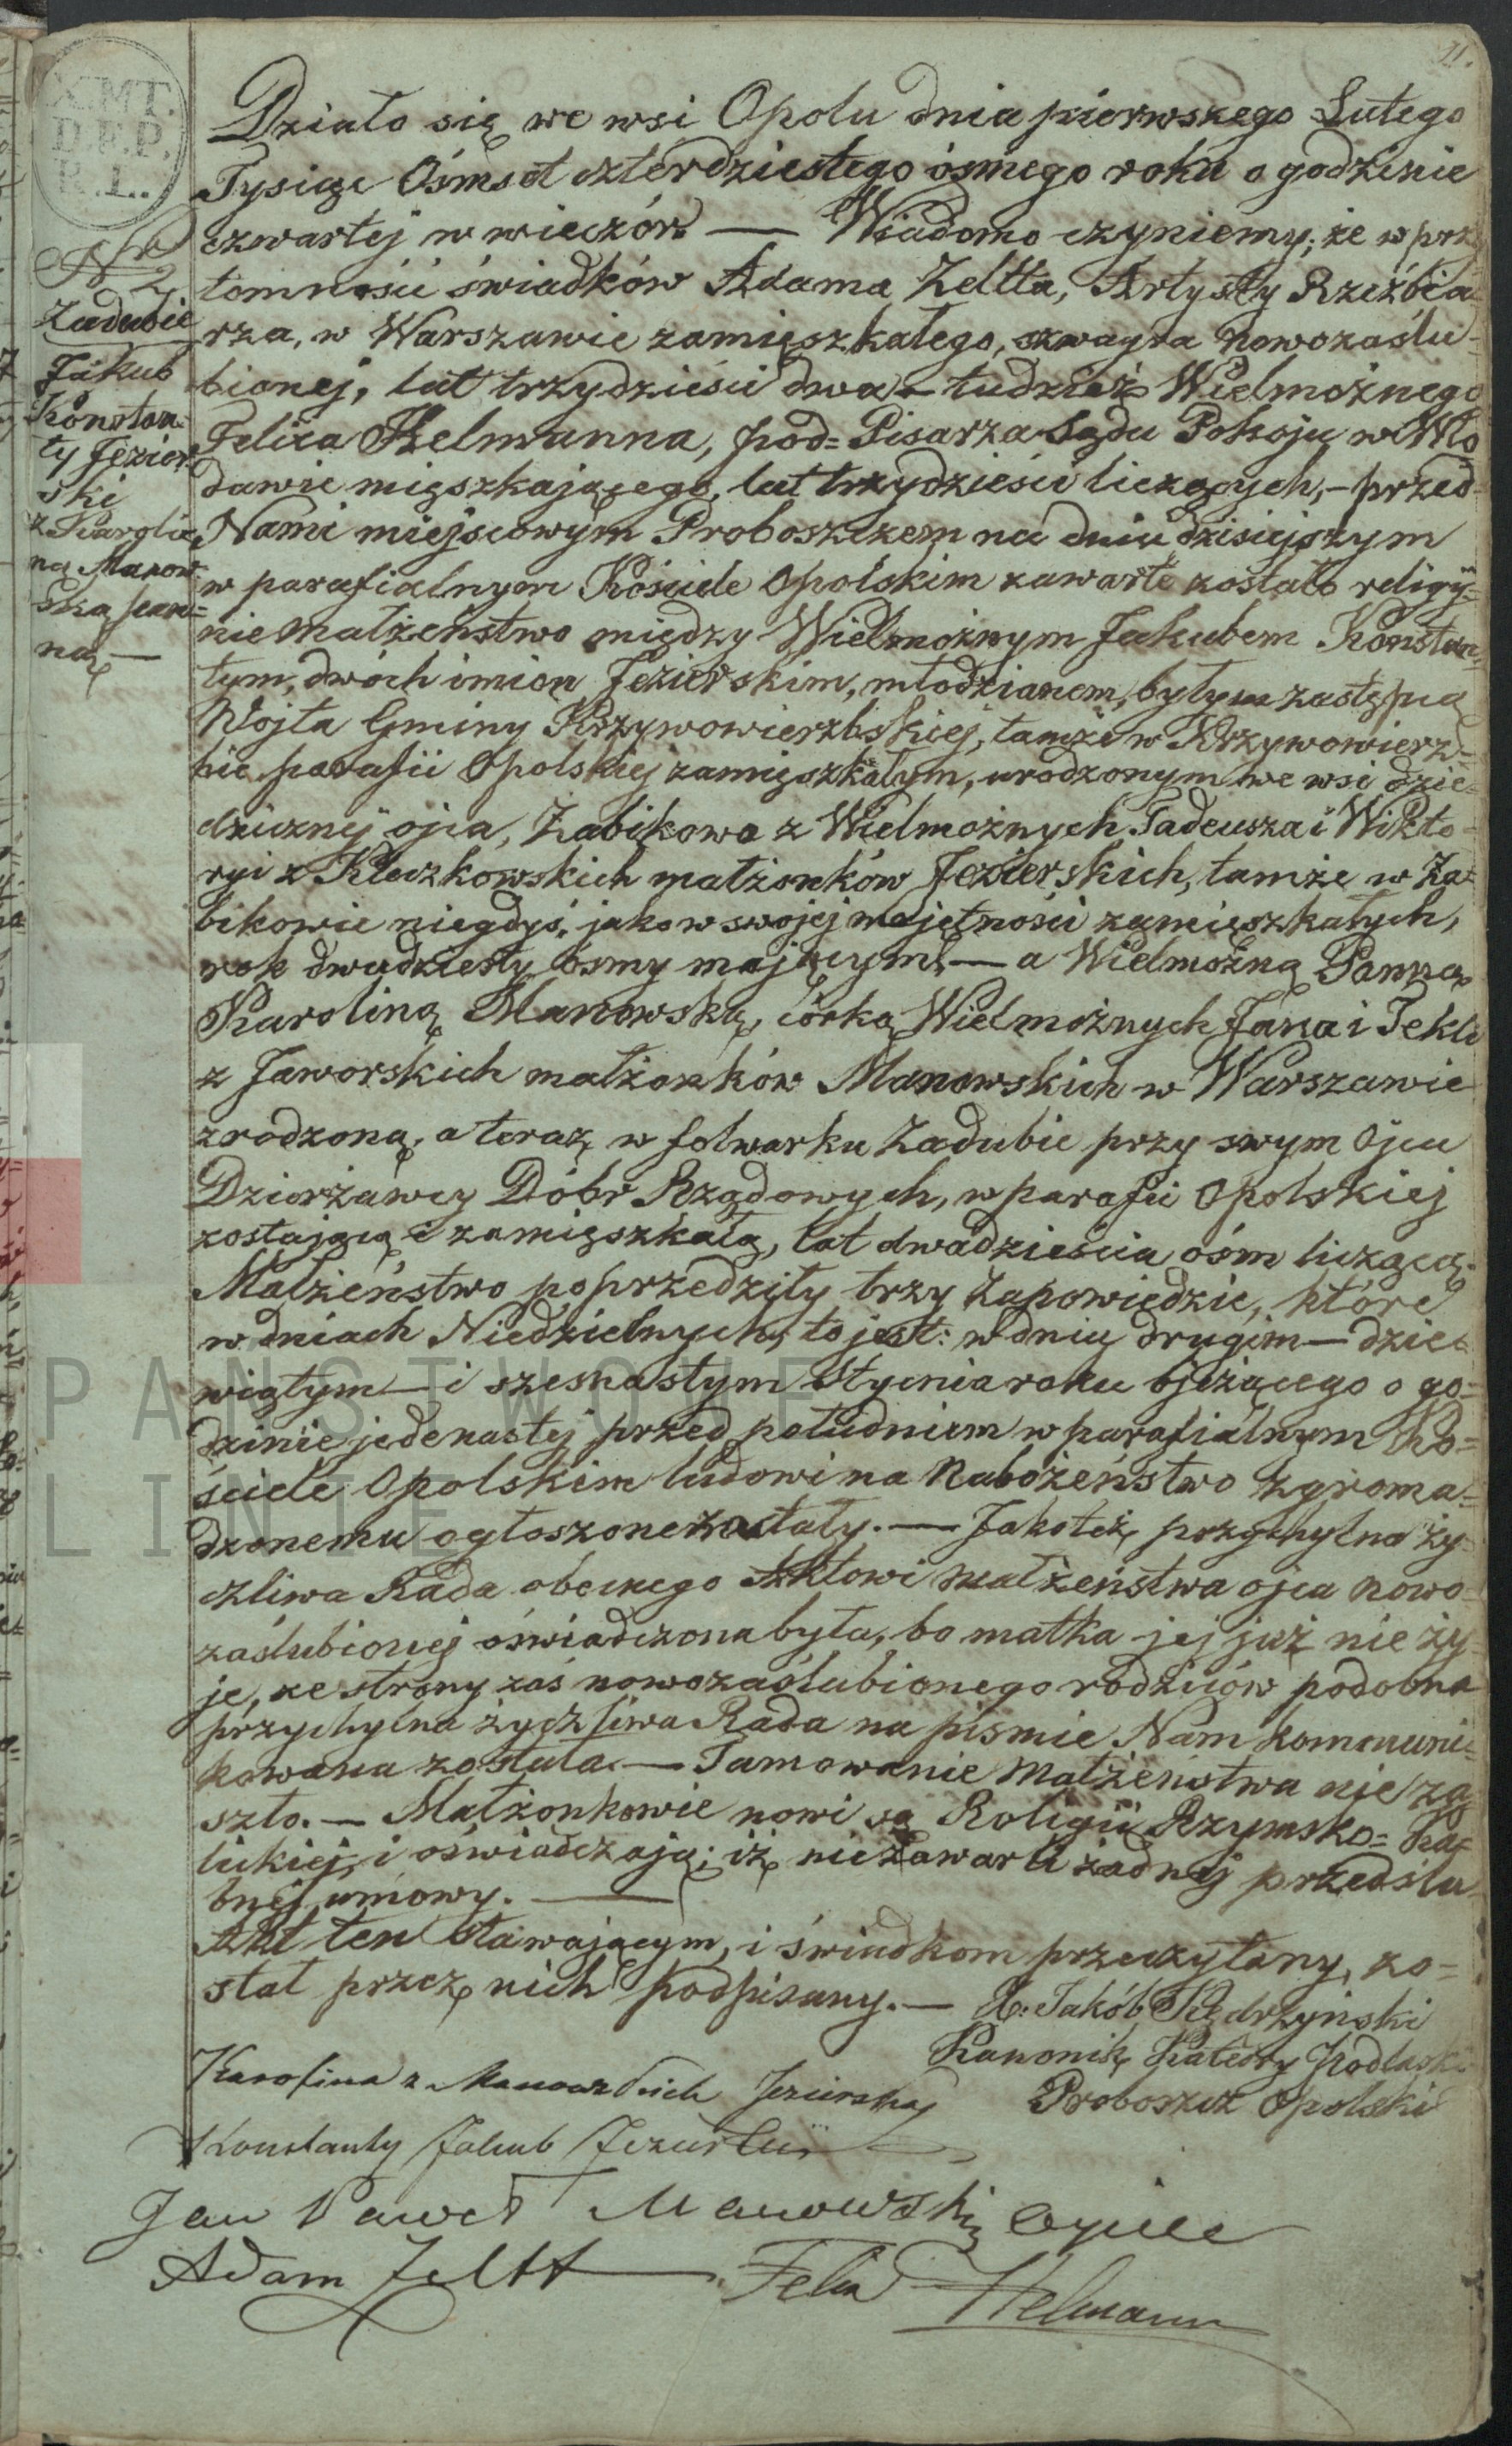 11.
X.MT.
D.F.P.
R.L.
Nr 2
Zadubie
Jakub
Konstan-
ty Jezier
ski
z Karoli-
ną Manow-
ską pan-
ną —
Działo się we wsi Opolu dnia pierwszego Lutego
Tysiąc Ośmset czterdziestego ósmego roku o godzinie
czwartej w wieczór. — Wiadomo czyniemy; że w przy
tomności świadków Adama Zeltta, Artysty Rzeźbia-
rza, w Warszawie zamięszkałego, szwagra nowozaślu-
bionej, lat trzydzieści dwa — tudzież Wielmożnego
Felixa Helmanna, pod=Pisarza Sądu Pokoju w Wło
dawie mięszkającego, lat trzydzieści liczących, — przed
Nami miejscowym Proboszczem na dniu dzisiejszym
w parafialnym Kościele Opolskim zawarte zostało religij-
nie małżeństwo między Wielmożnym Jakubem Konstan-
tym, dwóch imion Jezierskim, młodzianem, byłym zastępcą
Wójta Gminy Krzywowierzbskiej, tamże w Krzywowierz-
bie parafii Opolskiej zamięszkałym, urodzonym we wsi dzie-
dzicznej ojca, Zabikowo z Wielmożnych Tadeusza i Wikto-
ryi z Kleczkowskich małżonków Jezierskich, tamże w Za-
bikowie niegdyś, jako w swojej majętności zamięszkałych,
rok dwudziesty ósmy mającym, — a Wielmożną Panną
Karoliną Manowską, córką Wielmożnych Jana i Tekli
z Jaworskich małżonków Manowskich w Warszawie
zrodzoną, a teraz w folwarku Zadubie przy swym Ojcu
Dzierżawcy Dóbr Rządowych, w parafii Opolskiej
zostającą i zamięszkałą, lat dwadzieścia ośm liczącą.
Małżeństwo poprzedziły trzy Zapowiedzie, które
w dniach Niedzielnych, to jest: w dniu drugim — dzie-
wiątym — i szesnastym Stycznia roku bieżącego o go-
dzinie jedenastej przed południem w parafialnym Ko-
ściele Opolskim ludowi na Nabożeństwo zgroma-
dzonemu ogłoszone zostały. — Jakoteż przychylna ży-
czliwa Rada obecnego Aktowi małżeństwa ojca nowo-
zaślubionej oświadczona była, bo matka jej już nie ży-
je, ze strony zaś nowozaślubionego rodziców podobna
przychylna życzliwa Rada na piśmie Nam kommuni-
kowana została. — Tamowanie Małżeństwa nie za
szło. — Małżonkowie nowi są Religii Rzymsko=Kato
lickiej, i oświadczają; iż nie zawarli żadnej przedślu-
bnej umowy. —
Akt ten stawającym, i świadkom przeczytany, zo-
stał przez nich podpisany. — X. Jakób Kędrzyński
Kanonik Katedry Podlaski
Proboszcz Opolski
Karolina z Manowskich Jezierska
Konstanty Jakub Jezierski
Jan Paweł Manowski Ojciec
Adam Zeltt Felix Helmann
PANSTWOWE
LINIE